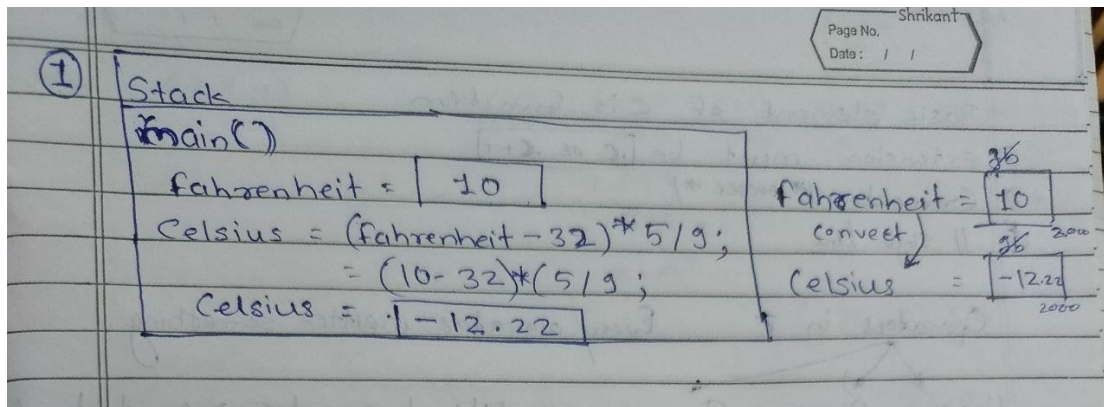 Shrikant
Page No.
Date : / /
1
Stack
main()
fahrenheit = 10
Celsius = (fahrenheit - 32) * 5/9;
= (10 - 32)*(5/9;
Celsius = -12.22
fahrenheit = 10
2000
convert
Celsius = -12.22
2000